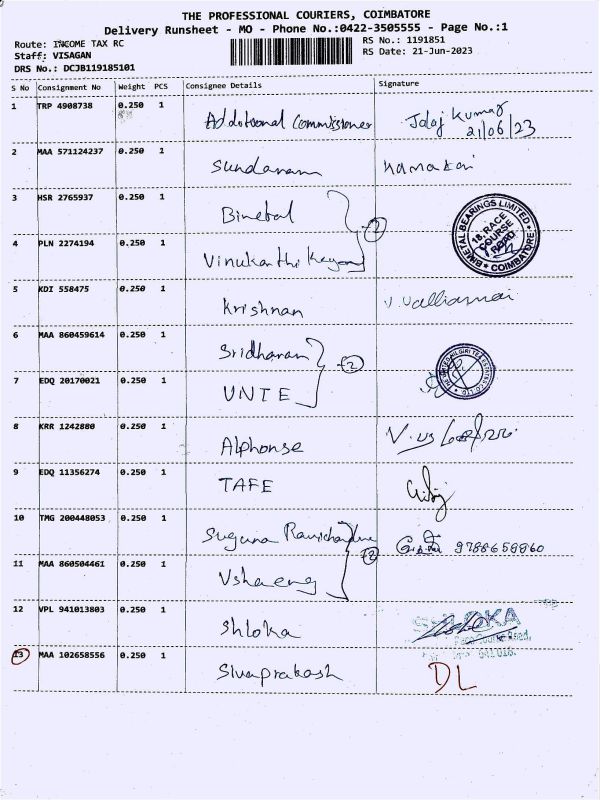 THE PROFESSIONAL COURIERS, COIMBATORE
Delivery Runsheet - MO - Phone No.:0422-3505555 - Page No.:1
Route: INCOME TAX RC
RS No.: 1191851
Staff: VISAGAN
RS Date: 21-Jun-2023
DRS No.: DCJB119185101
S No Consignment No Weight PCS Consignee Details Signature
1 TRP 4908738 0.250 1 Additional Commissioner Jalaj Kumar
21/06/23
2 MAA 571124237 0.250 1 Sundaram Kamatchi
3 HSR 2765937 0.250 1 Bimetal
BIMETAL BEARINGS LIMITED * COIMBATORE *
18, RACE
COURSE
ROAD
4 PLN 2274194 0.250 1 Vinukanthi 2
5 KDI 558475 0.250 1 Krishnan V. Valliamai
6 MAA 860459614 0.250 1 Sridharan 2
7 EDQ 20170021 0.250 1 UNTE
8 KRR 1242880 0.250 1 Alphonse
9 EDQ 11356274 0.250 1 TAFE
10 TMG 200448053 0.250 1 Suguna 2 9788658860
11 MAA 860504461 0.250 1
12 VPL 941013803 0.250 1 Shloka SHLOKA
Race Course Road,
641 018.
13 MAA 102658556 0.250 1 Sivaprakash DL